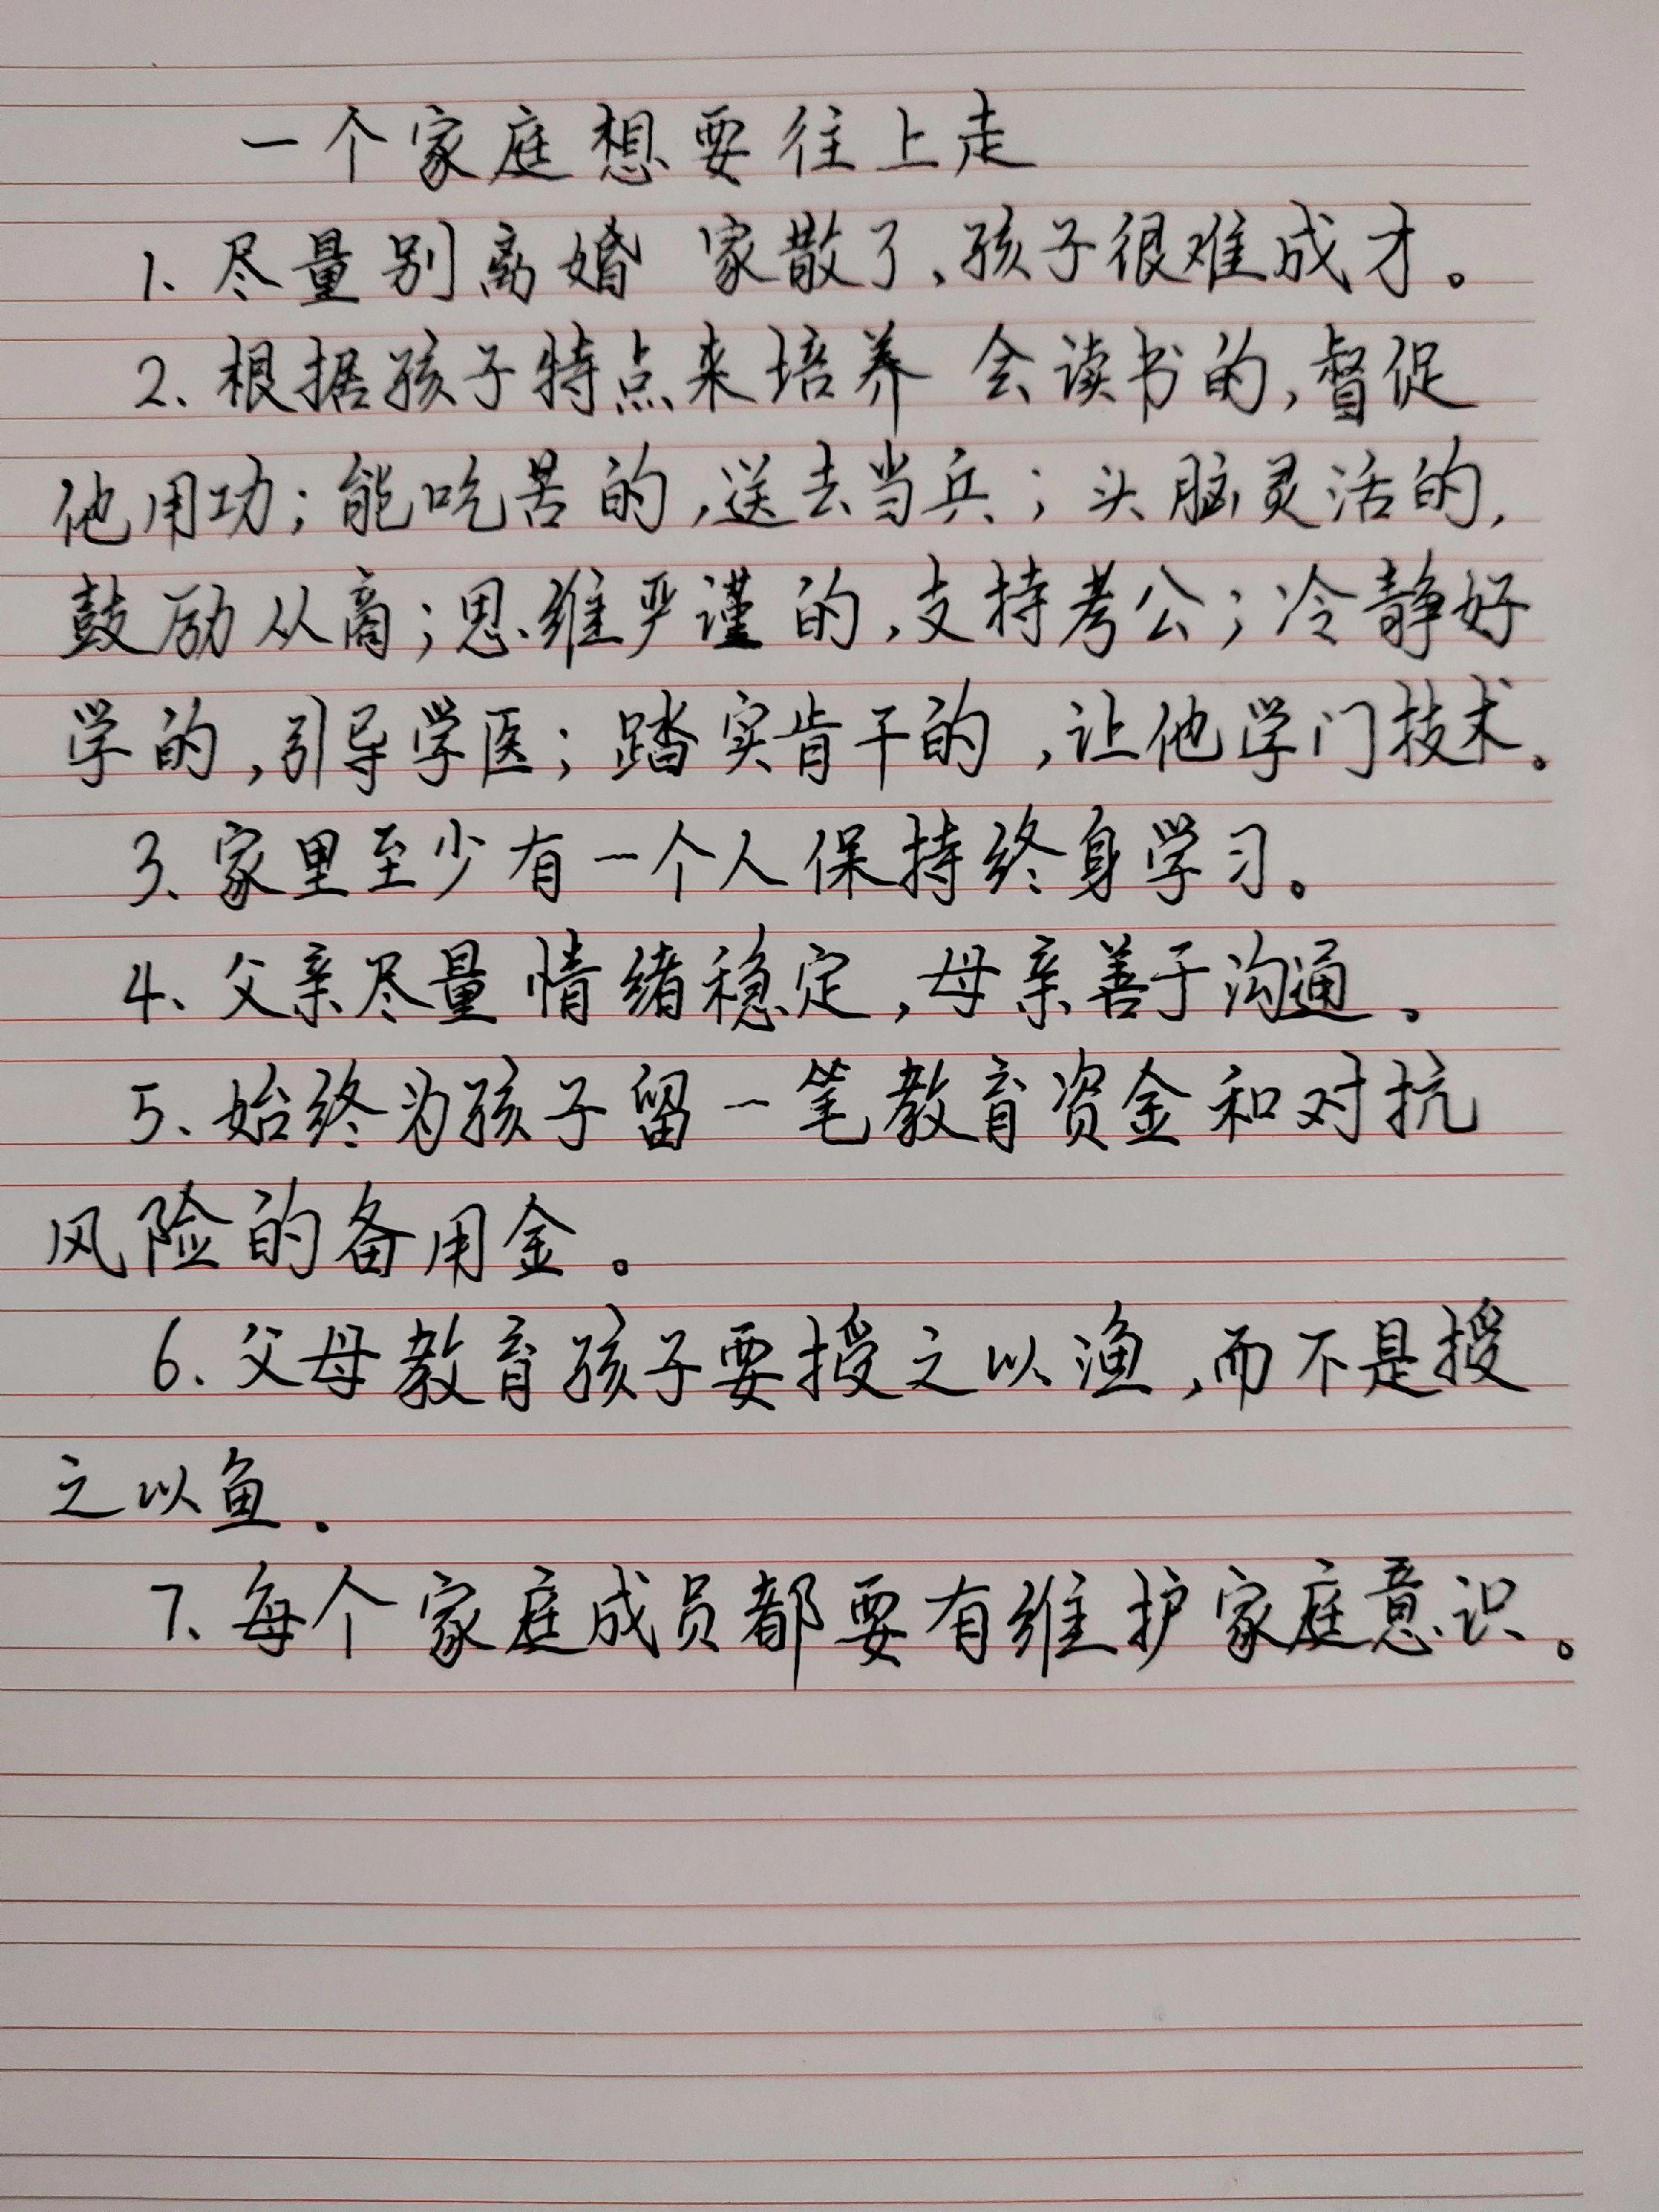 一个家庭想要往上走
1、尽量别离婚 家散了、孩子很难成才。
2、根据孩子特点来培养 会读书的,督促
他用功;能吃苦的,送去当兵;头脑灵活的,
鼓励从商;思维严谨的,支持考公;冷静好
学的,引导学医;踏实肯干的,让他学门技术。
3、家里至少有一个人保持终身学习。
4、父亲尽量情绪稳定,母亲善于沟通。
5、始终为孩子留一笔教育资金和对抗
风险的备用金。
6、父母教育孩子要授之以渔,而不是授
之以鱼.
7、每个家庭成员都要有维护家庭意识。